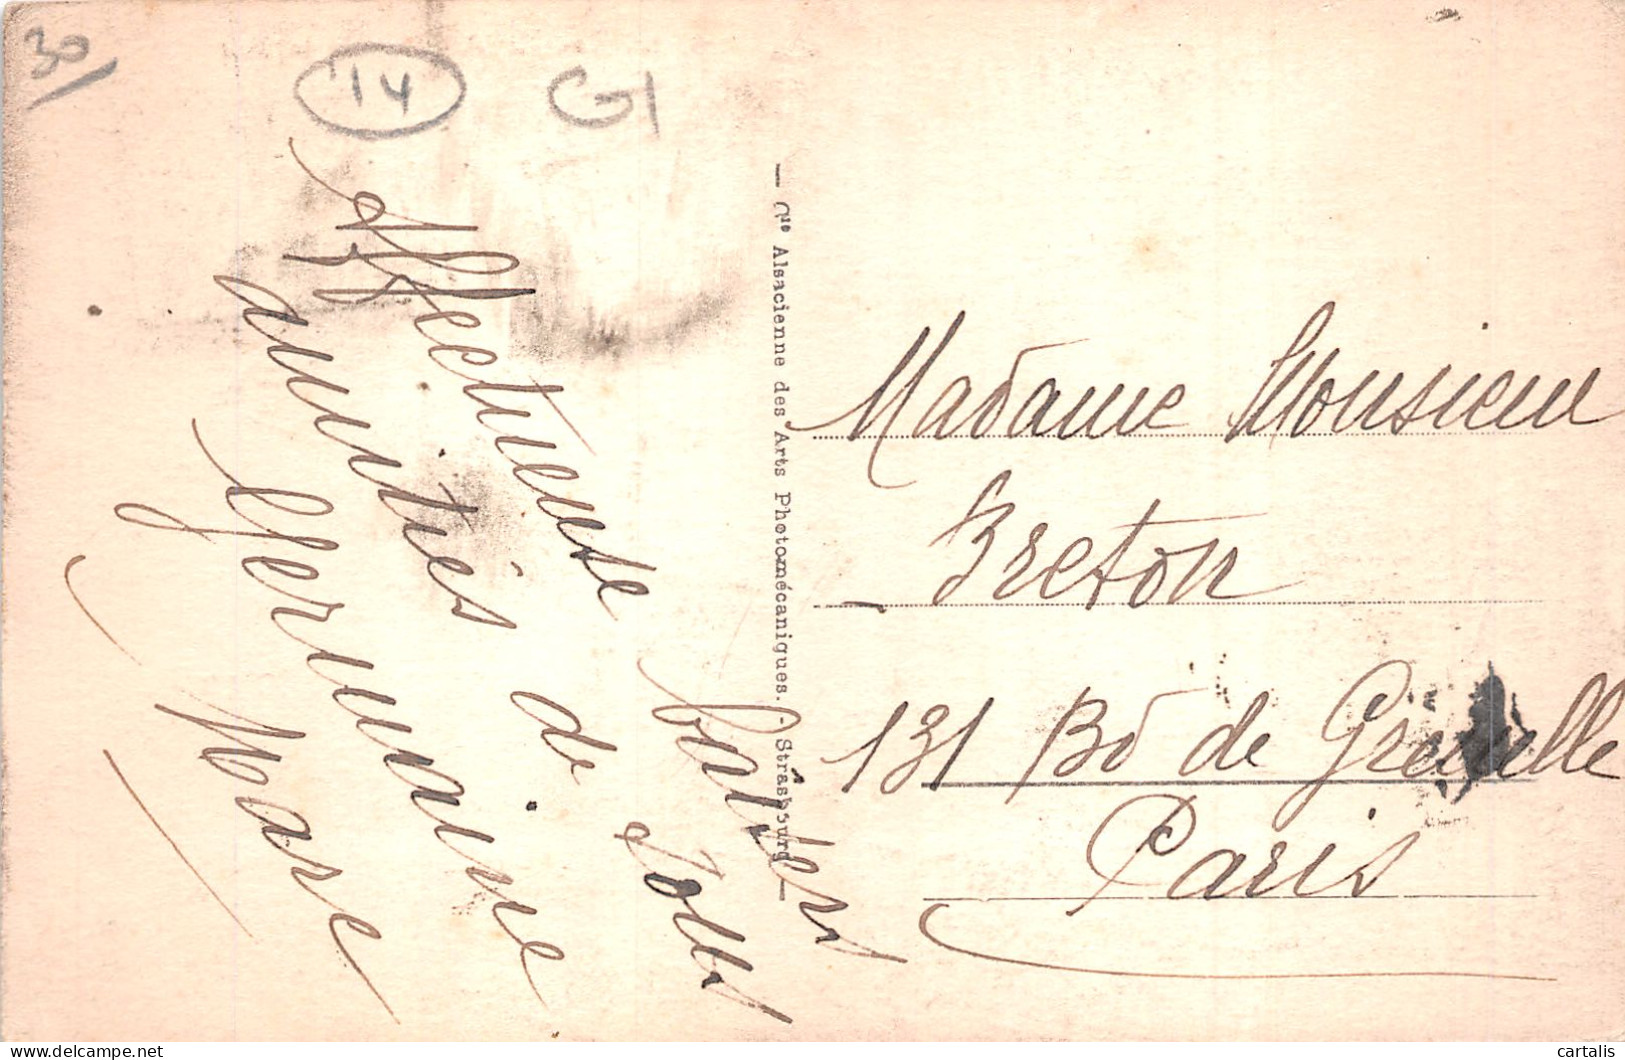 30
14
GI
Affectueuse baisers
amitiés de tous
Germaine
Marc
— Cie Alsacienne des Arts Photomécaniques. - Strasbourg —
Madame Monsieur
Breton
131 Bd de Grenelle
Paris
cartalis
delcampe.net